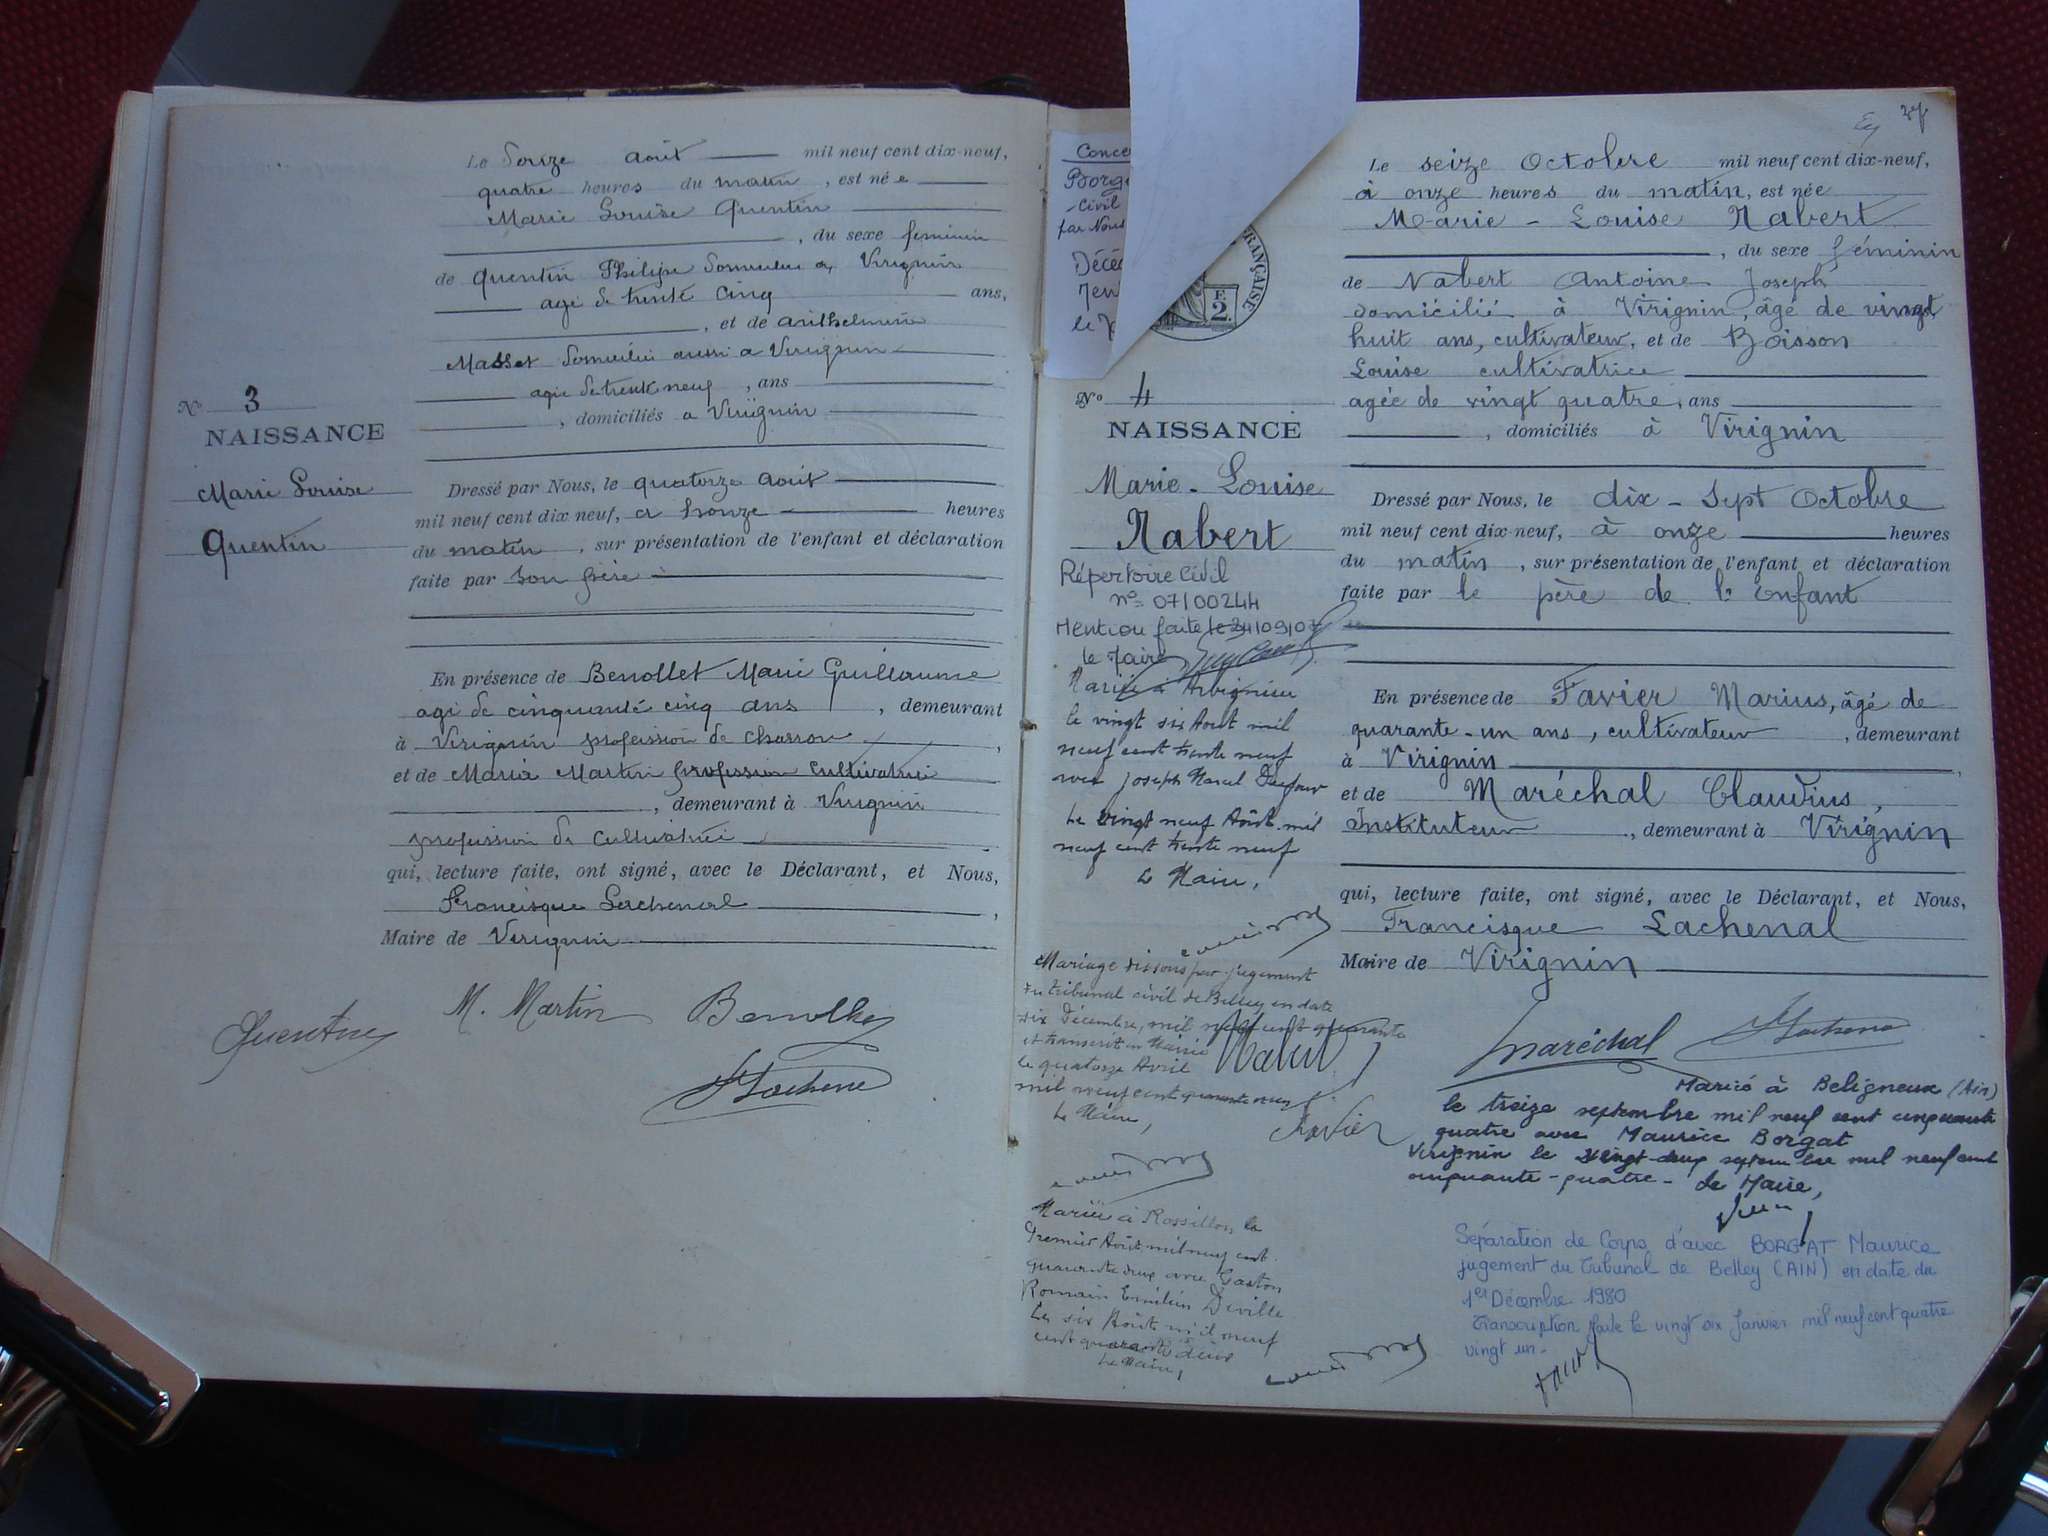 Le Douze août mil neuf cent dix-neuf,
quatre heures du matin, est née
Marie Louise Quentin
, du sexe feminin
de Quentin Philipe Domicilié a Virignin
agé de trente cinq ans,
, et de anthelmine
Masset Domicilié aussi a Virignin
agée de trente neuf, ans
, domiciliés a Virignin
No 3
NAISSANCE
Marie Louise
Quentin
Dressé par Nous, le quatorze août
mil neuf cent dix neuf, a honze heures
du matin, sur présentation de l'enfant et déclaration
faite par son père
En présence de Benollet Marie Guillaume
agé de cinquante cinq ans, demeurant
à Virignin profession de charron,
et de Maria Martin profession cultivatrice
, demeurant à Virignin
profession de cultivatrice
qui, lecture faite, ont signé, avec le Déclarant, et Nous,
Francisque Lachenal,
Maire de Virignin
Quentin M. Martin Benollet
Lachenal
27
Conce
Borg
Civil
par Nous
Décé
le
FRANÇAISE
F.
2.
No 4
NAISSANCE
Marie-Louise
Nabert
Répertoire Civil
n° 07/00244
Mention faite le 24/09/07
le Maire
Mariée à Arbignieu
le vingt six Août mil
neuf cent trente neuf
avec Joseph Marcel Dufour
Le vingt neuf Août mil
neuf cent trente neuf
Le Maire,
Mariage dissous par jugement
du tribunal civil de Belley en date
dix Décembre, mil neuf cent quarante
et transcrit en Mairie
le quatorze Avril
mil neuf cent quarante
Le Maire,
Mariée à Rossillon le
Premier Août mil neuf cent
quarante deux avec Gaston
Romain Emilien Diville
Le six Août mil neuf
cent quarante deux
Le Maire,
Le seize Octobre mil neuf cent dix-neuf,
à onze heures du matin, est née
Marie-Louise Nabert
, du sexe féminin
de Nabert Antoine Joseph
domicilié à Virignin, âgé de vingt
huit ans, cultivateur, et de Boisson
Louise cultivatrice
agée de vingt quatre, ans
, domiciliés à Virignin
Dressé par Nous, le dix-sept Octobre
mil neuf cent dix neuf, à onze heures
du matin, sur présentation de l'enfant et déclaration
faite par le père de l'enfant
En présence de Favier Marius, âgé de
quarante-un ans, cultivateur, demeurant
à Virignin,
et de Maréchal Claudius,
Instituteur, demeurant à Virignin
qui, lecture faite, ont signé, avec le Déclarant, et Nous,
Francisque Lachenal
Maire de Virignin
Nabert Maréchal Lachenal
Favier
Mariée à Beligneux (Ain)
le treize septembre mil neuf cent cinquante
quatre avec Maurice Borgat
Virignin le vingt-deux septembre mil neuf cent
cinquante-quatre- Le Maire,
Séparation de Corps d'avec BORGAT Maurice
jugement du Tribunal de Belley (AIN) en date du
1er Décembre 1980
Transcription faite le vingt six Janvier mil neuf cent quatre
vingt un-